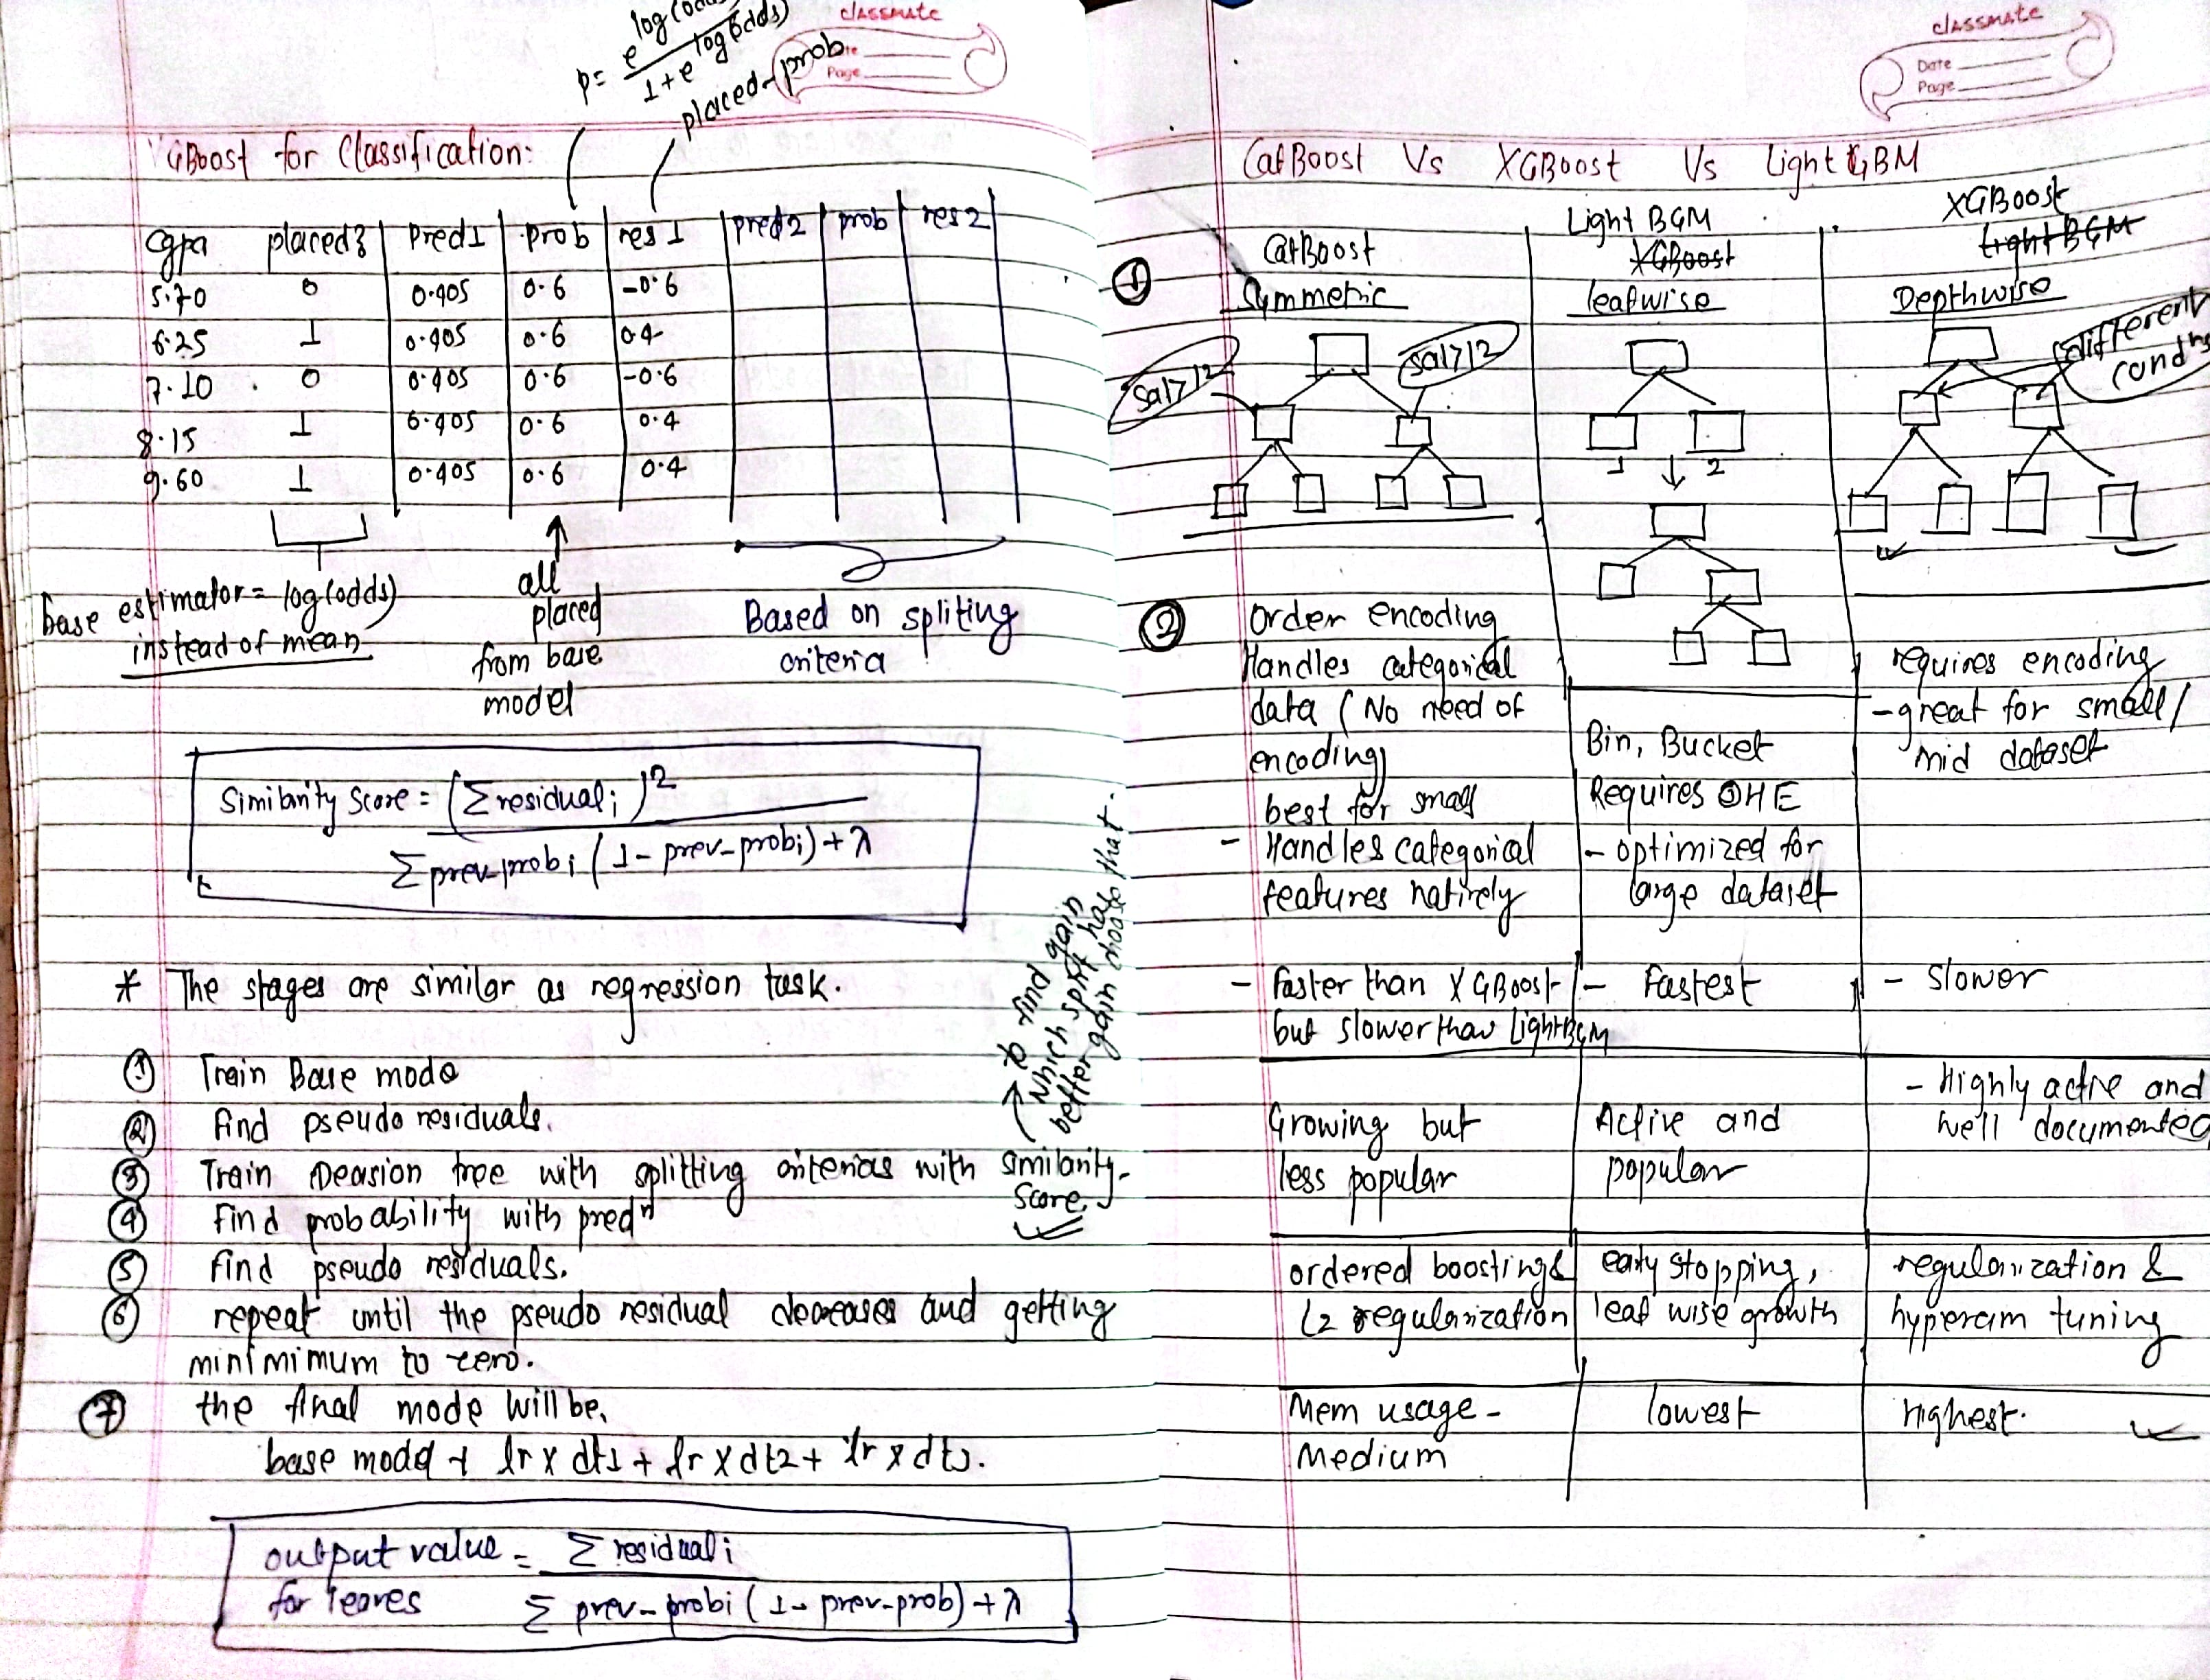 p = e^log(odds) / 1+e^log(odds)
placed-prob
classmate
Date
Page
XGBoost for Classification:
cgpa placed? Pred1 prob res1 pred2 prob res2
5.70 0 0.405 0.6 -0.6
6.25 1 0.405 0.6 0.4
7.10 0 0.405 0.6 -0.6
8.15 1 0.405 0.6 0.4
9.60 1 0.405 0.6 0.4
base estimator = log(odds)
instead of mean
all
placed
from base
model
Based on spliting
criteria
Similarity Score = (Σ residual i)²
Σ prev-prob i (1 - prev-prob i) + λ
* The stages are similar as regression task.
① Train Base mode
② find pseudo residuals.
③ Train Decision tree with splitting criterias with similarity-
Score.
→ to find gain
which split has
better gain choose that.
④ find probability with predⁿ
⑤ find pseudo residuals.
⑥ repeat until the pseudo residual decreases and getting
minimimum to zero.
⑦ the final mode will be,
base model + lr x dt1 + lr x dt2 + lr x dt3.
output value = Σ residual i
for leaves Σ prev-prob i (1 - prev-prob) + λ
classmate
Date
Page
CatBoost Vs XGBoost Vs Light GBM
① CatBoost
Symmetric
sal>12
sal>12
Light BGM
XGBoost
leafwise
1 2
XGBoost
Light BGM
Depthwise
different
condⁿs
② Order encoding
Handles categorical
data (No need of
encoding)
best for small
- Handles categorical
features natively
Bin, Bucket
Requires OHE
- optimized for
large dataset
requires encoding
- great for small/
mid dataset
- faster than XGBoost
but slower than LightBGM
- Fastest
- slower
Growing but
less popular
Active and
popular
- Highly active and
well documented
ordered boosting &
L2 regularization
early stopping,
leaf wise growth
regularization &
hyperam tuning
Mem usage -
Medium
lowest
Highest.